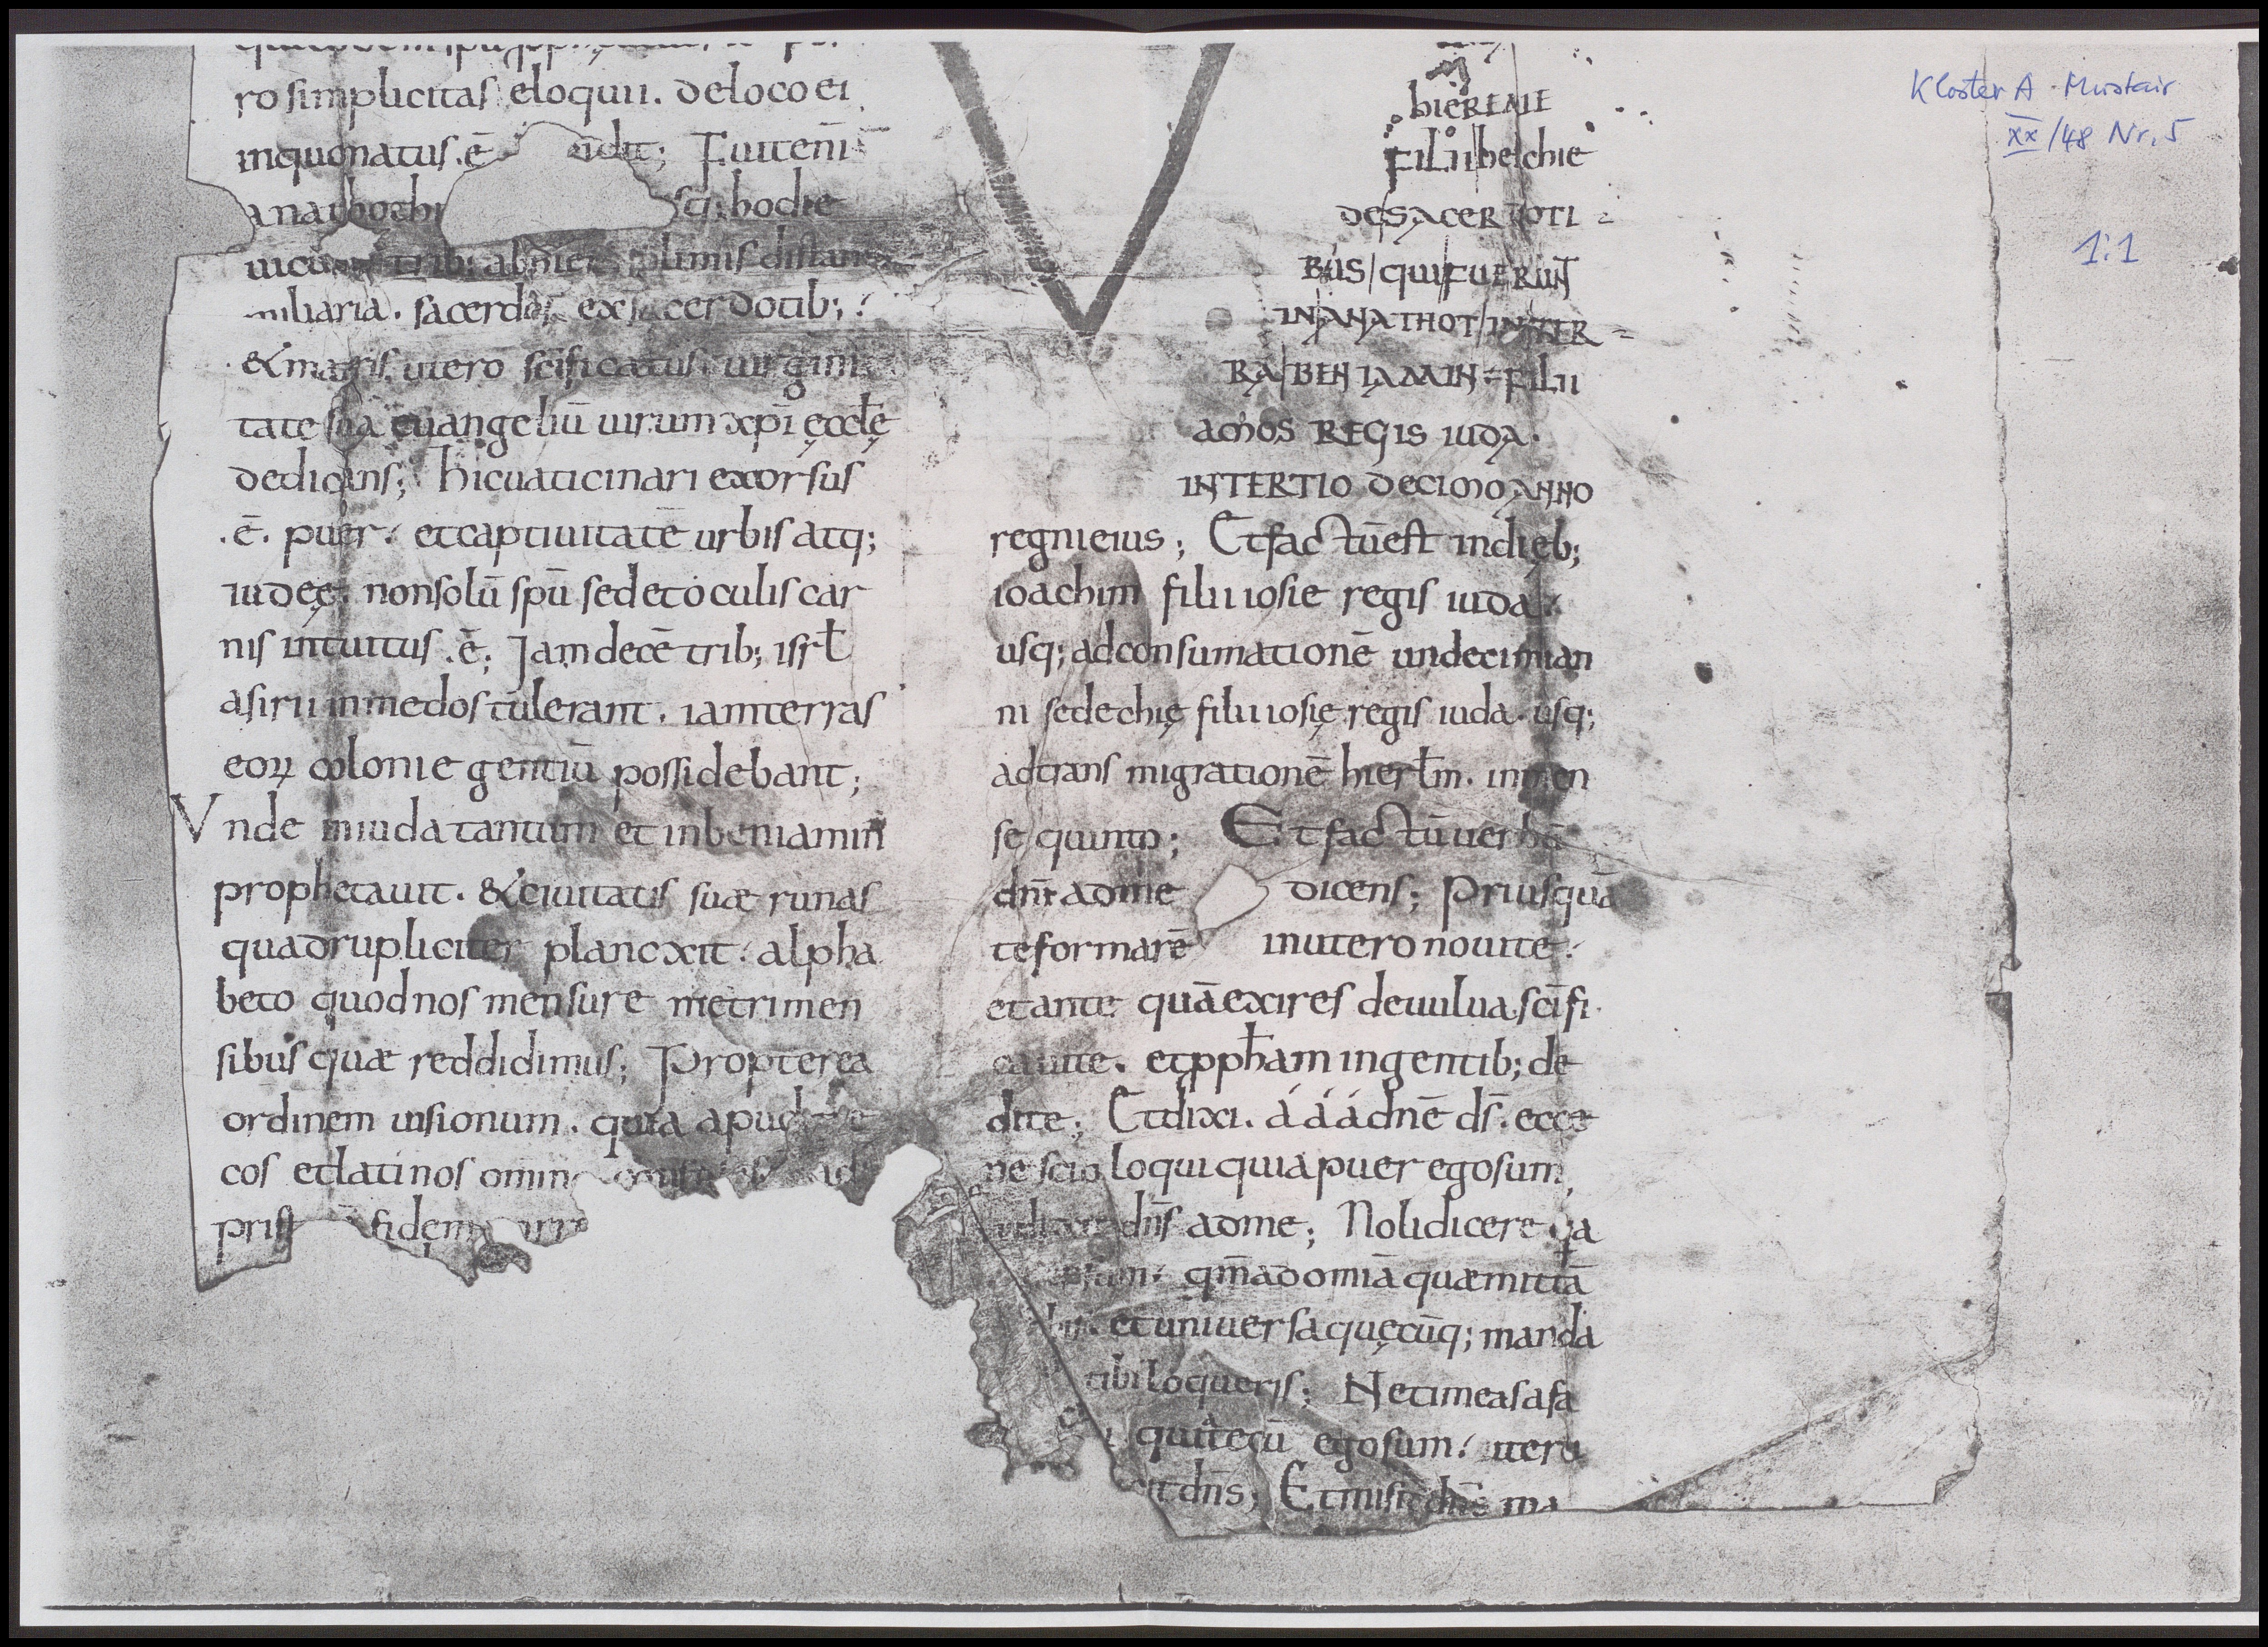 ro simplicitas eloquii. deloco ei
inquonatus.ē Fuitenī
anathothi hodie
trib; ab distan
miliaria. sacerdos ex sacerdotib;
& matris utero scīficatus. uirgini
tate sua euangeliū uirum xp̄i ęccłę
dedicans; hicuaticinari exorsus
.ē. puer. etcaptiuitatē urbis atq;
iudeę. nonsolū spū sed etoculis car
nis intuitus .ē; Jam decē trib; isrł
asirii inmedos tulerant. iamterras
eoꝝ colonie gentiū possidebant;
Vnde iniuda tantum et inbeniamin
prophetauit. & ciuitatis suæ runas
quadrupliciter plancxit. alpha
beto quod nos mensure metri men
sibus quæ reddidimus; Propterea
ordinem uisionum. quia apud
cos etlatinos omin
fidem
hieREMIE
FILII helchie
DESACERDOTI
BUS QUIFUERUNT
INANATHOT INTER
RA BENIAMIN FILII
AMOS REGIS IUDA.
INTERTIO DECIMO ANNO
regnieius; Etfactūest indieb;
ioachim filii iosie regis iuda
usq; adconsumationē undecimian
ni sedechię filii iosię regis iuda. usq;
adtrans migrationē hierłm. inmen
se quinto; Etfactū uerbū
dn̄i adme dicens; Priusquā
teformarē inutero nouite.
etante quāexires deuulua. scīfi
cauite. etppham ingentib; de
dite; Etdixi. á á á dnē ds̄. ecce
nescio loqui quia puer egosum,
dn̄s adme; Nolidicere
qm̄ adomīa quæmittā
et uniuersa quęcūq; manda
tibi loqueris; Netimeasafa
quiatecū egosum. uteru
it dn̄s; Etmisit dn̄s ma
Kloster A. Müstair
XX/48 Nr. 5
1:1